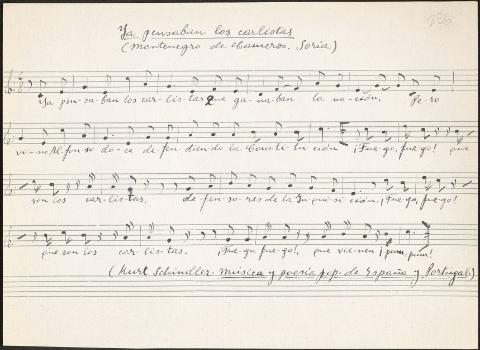 286
Ya pensaban los carlistas
(Montenegro de Cameros. Soria)
¡Ya pen-sa-ban los car-lis-tas que ga-na-ban la na-ción, Pe-ro
vi-no Alfonso do-ce de fen-dien-do la Cons-ti-tu-ción ¡Fue-go, fue-go! que
son los car-lis-tas, de-fen-so-res de la In-qui-si-ción. ¡Fue-go, fue-go!
que son los car-lis-tas. ¡Fue-go, fue-go!, que vie-nen ¡pum, pum!
(Kurt Schindler. Música y poesía pop. de España y Portugal.)